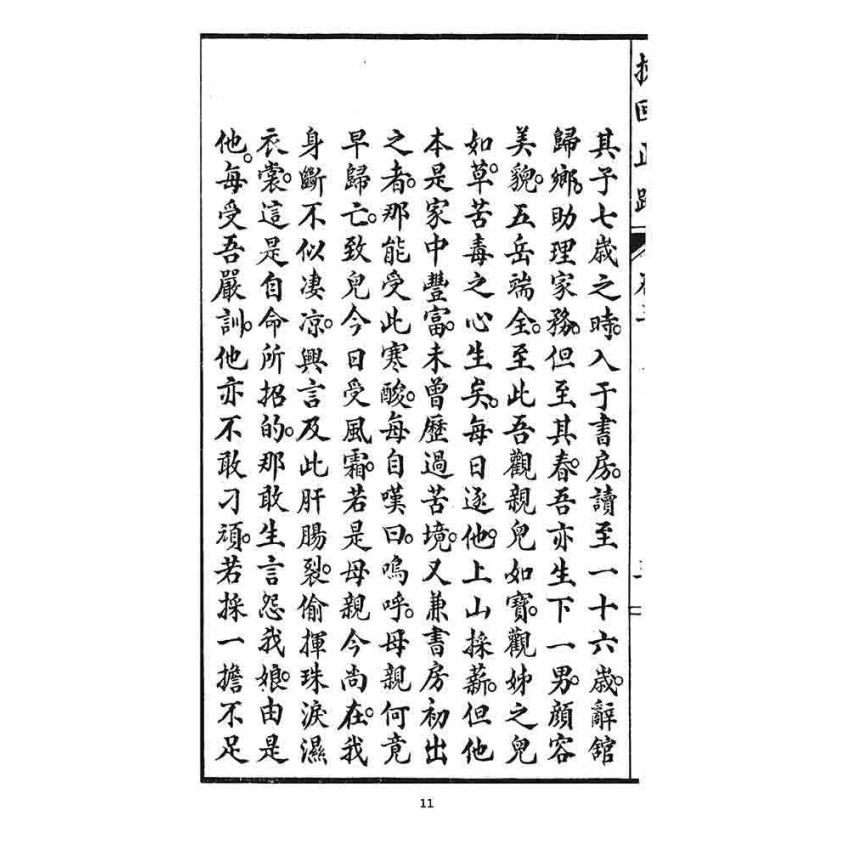 其子七歲之時。入于書房。讀至一十六歲。辭館
歸鄉。助理家務。但至其春。吾亦生下一男。顏容
美貌。五岳端全。至此吾觀親兒如寶。觀姊之兒
如草。苦毒之心生矣。每日逐他。上山採薪。但他
本是家中豐富。未曾歷過苦境。又兼書房初出
之者。那能受此寒酸。每自嘆曰。嗚呼。母親何竟
早歸亡。致兒今日受風霜。若是母親今尚在。我
身斷不似凄凉。興言及此肝腸裂。偷揮珠淚濕
衣裳。這是自命所招的。那敢生言怨我娘。由是
他。每受吾嚴訓。他亦不敢刁頑。若採一擔不足
11